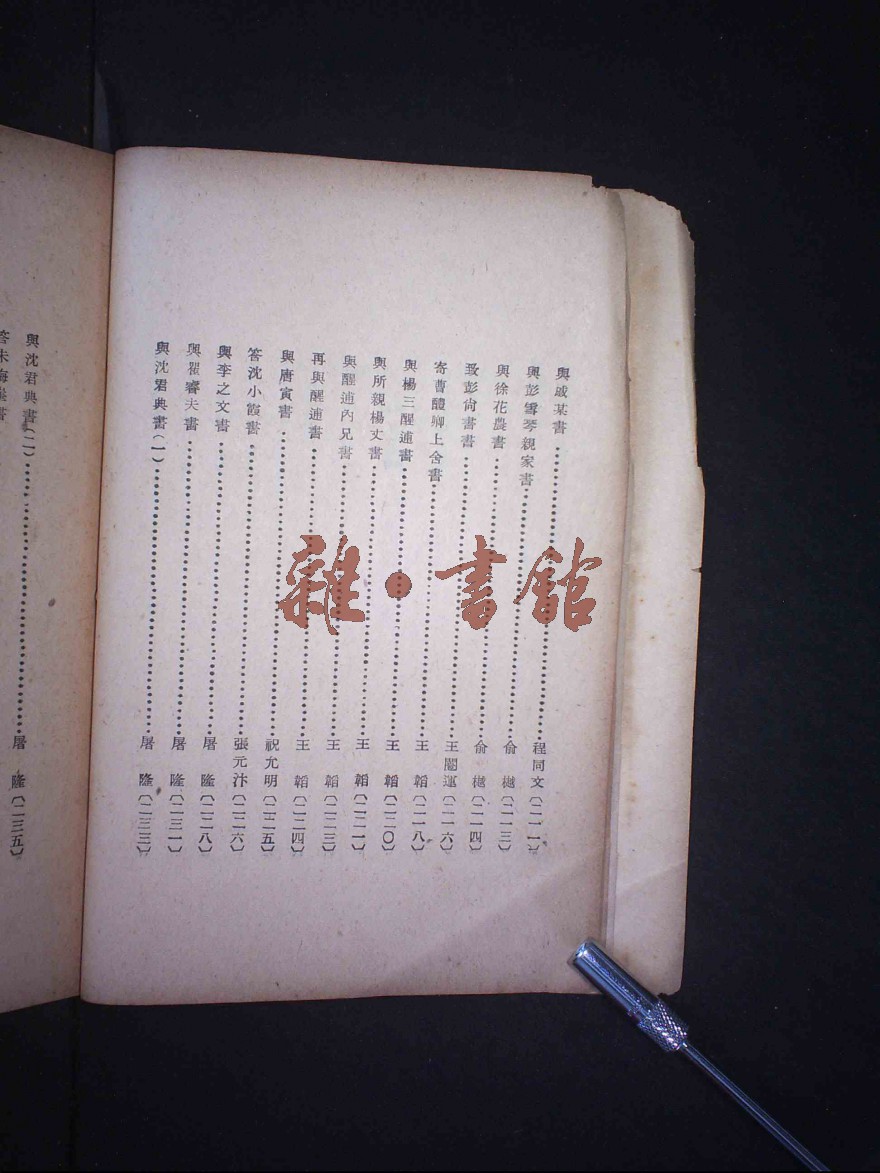 與戚某書……程同文〔二一一〕
與彭雪琴親家書……俞樾〔二一三〕
與徐花農書……俞樾〔二一四〕
致彭尙書書……王闓運〔二一六〕
寄曹醴卿上舍書……王韜〔二一八〕
與楊三醒逋書……王韜〔二二〇〕
與所親楊丈書……王韜〔二二一〕
與醒逋內兄書……王韜〔二二三〕
再與醒逋書……王韜〔二二四〕
與唐寅書……祝允明〔二二五〕
答沈小霞書……張元汴〔二二六〕
與李之文書……屠隆〔二二八〕
與瞿睿夫書……屠隆〔二三一〕
與沈君典書(一)……屠隆〔二三三〕
與沈君典書(二)……屠隆〔二三五〕
雜·書館